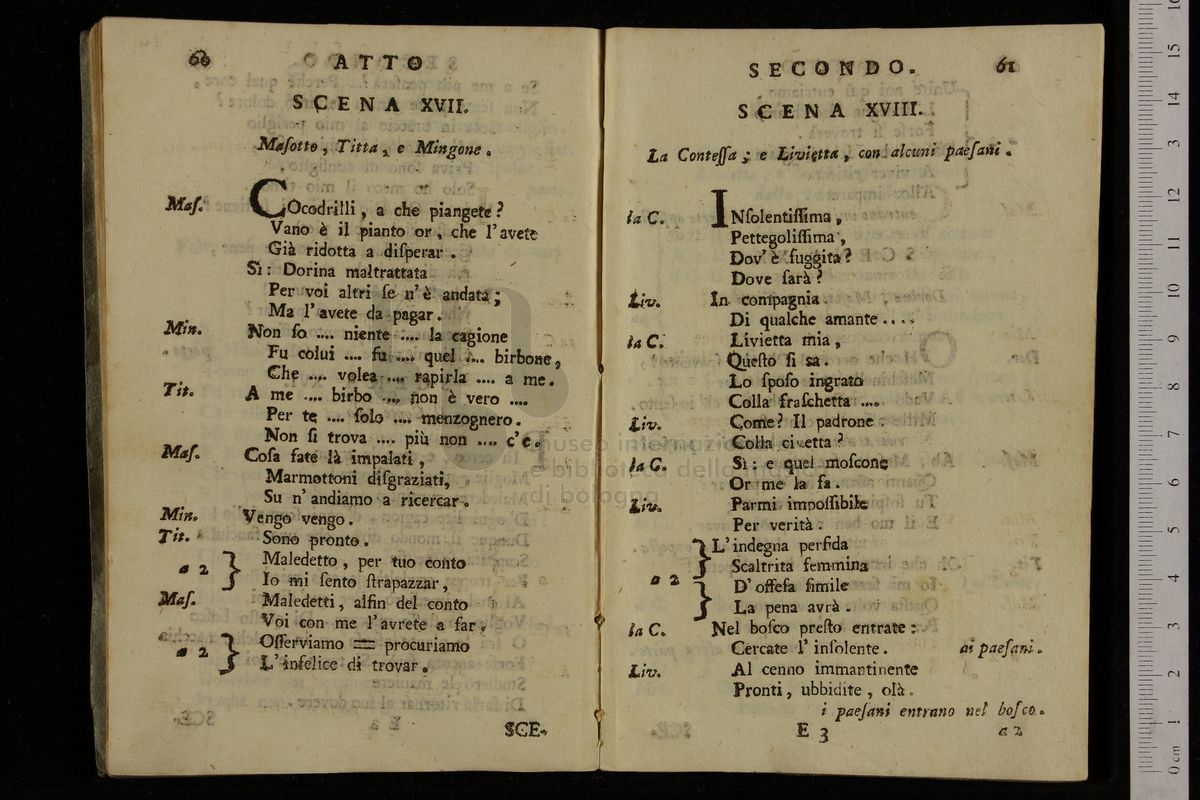 60 ATTO
SCENA XVII.
Maſotto, Titta, e Mingone.
Maſ. COcodrilli, a che piangete?
Vano è il pianto or, che l'avete
Già ridotta a diſperar.
Sì: Dorina maltrattata
Per voi altri ſe n'è andata;
Ma l'avete da pagar.
Min. Non ſo .... niente .... la cagione
Fu colui .... fu .... quel .... birbone,
Che .... volea .... rapirla .... a me.
Tit. A me .... birbo .... non è vero ....
Per te .... ſolo .... menzognero.
Non ſi trova .... più non .... c'è.
Maſ. Coſa fate là impalati,
Marmottoni diſgraziati,
Su n'andiamo a ricercar.
Min. Vengo vengo.
Tit. Sono pronto.
a 2 } Maledetto, per tuo conto
Io mi ſento ſtrapazzar,
Maſ. Maledetti, alfin del conto
Voi con me l'avrete a far.
a 2 } Oſſerviamo = procuriamo
L'infelice di trovar.
SCE-
SECONDO. 61
SCENA XVIII.
La Conteſſa, e Livietta, con alcuni paeſani.
la C. INſolentiſſima,
Pettegoliſſima,
Dov'è fuggita?
Dove ſarà?
Liv. In compagnia
Di qualche amante....
la C. Livietta mia,
Queſto ſi sa.
Lo ſpoſo ingrato
Colla fraſchetta ....
Liv. Come? Il padrone
Colla civetta?
la C. Sì: e quel moſcone
Or me la fa.
Liv. Parmi impoſſibile
Per verità.
a 2 } L'indegna perfida
Scaltrita femmina
} D'offeſa ſimile
La pena avrà.
la C. Nel boſco preſto entrate:
Cercate l'inſolente. ai paeſani.
Liv. Al cenno immantinente
Pronti, ubbidite, olà.
i paeſani entrano nel boſco.
E 3 a 2
museo internazionale
e biblioteca della musica
di bologna
0 cm 1 2 3 4 5 6 7 8 9 10 11 12 13 14 15 16